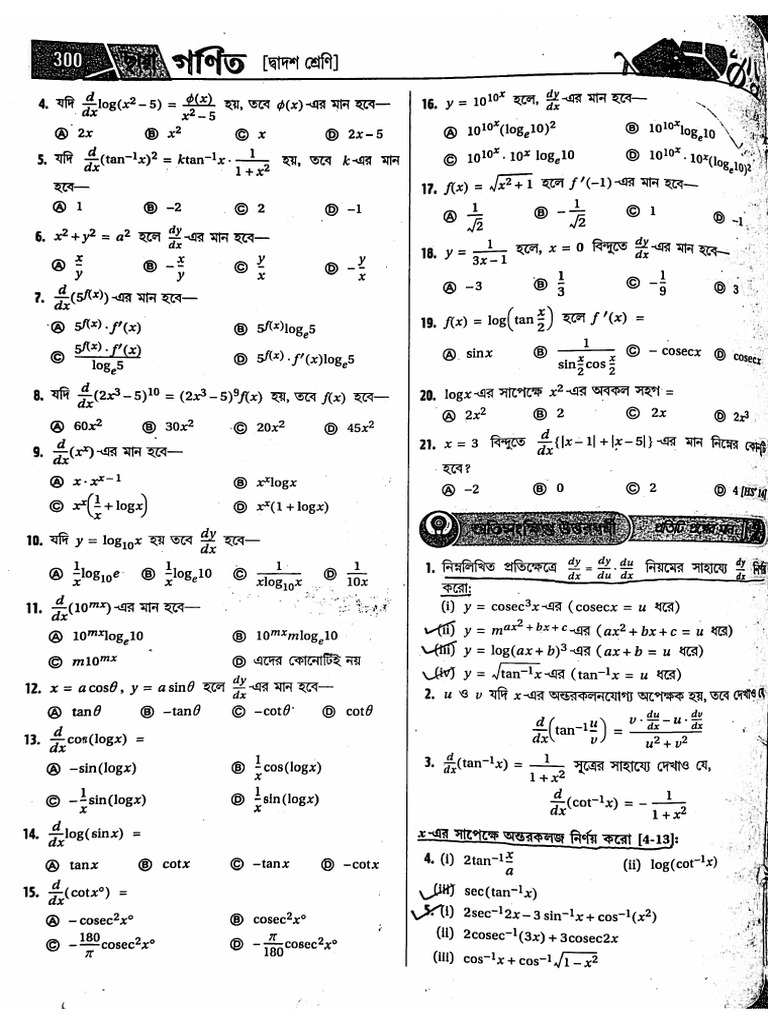 300 ছায়া গণিত [দ্বাদশ শ্রেণি]
4. যদি d/dx log(x²−5) = ϕ(x)/(x²−5) হয়, তবে ϕ(x)-এর মান হবে—
Ⓐ 2x Ⓑ x² Ⓒ x Ⓓ 2x−5
5. যদি d/dx (tan⁻¹x)² = ktan⁻¹x · 1/(1+x²) হয়, তবে k-এর মান
হবে—
Ⓐ 1 Ⓑ −2 Ⓒ 2 Ⓓ −1
6. x²+y² = a² হলে dy/dx-এর মান হবে—
Ⓐ x/y Ⓑ −x/y Ⓒ y/x Ⓓ −y/x
7. d/dx (5^f(x))-এর মান হবে—
Ⓐ 5^f(x) · f′(x) Ⓑ 5^f(x) logₑ5
Ⓒ 5^f(x) · f′(x)/logₑ5 Ⓓ 5^f(x) · f′(x)logₑ5
8. যদি d/dx (2x³−5)¹⁰ = (2x³−5)⁹f(x) হয়, তবে f(x) হবে—
Ⓐ 60x² Ⓑ 30x² Ⓒ 20x² Ⓓ 45x²
9. d/dx (xˣ)-এর মান হবে—
Ⓐ x · xˣ⁻¹ Ⓑ xˣlogx
Ⓒ xˣ(1/x + logx) Ⓓ xˣ(1 + logx)
10. যদি y = log₁₀x হয় তবে dy/dx হবে—
Ⓐ 1/x log₁₀e Ⓑ 1/x logₑ10 Ⓒ 1/(xlog₁₀x) Ⓓ 1/10x
11. d/dx (10ᵐˣ)-এর মান হবে—
Ⓐ 10ᵐˣlogₑ10 Ⓑ 10ᵐˣmlogₑ10
Ⓒ m10ᵐˣ Ⓓ এদের কোনোটিই নয়
12. x = acosθ, y = asinθ হলে dy/dx-এর মান হবে—
Ⓐ tanθ Ⓑ −tanθ Ⓒ −cotθ Ⓓ cotθ
13. d/dx cos(logx) =
Ⓐ −sin(logx) Ⓑ 1/x cos(logx)
Ⓒ −1/x sin(logx) Ⓓ 1/x sin(logx)
14. d/dx log(sinx) =
Ⓐ tanx Ⓑ cotx Ⓒ −tanx Ⓓ −cotx
15. d/dx (cotx°) =
Ⓐ −cosec²x° Ⓑ cosec²x°
Ⓒ −180/π cosec²x° Ⓓ −π/180 cosec²x°
16. y = 10^10ˣ হলে, dy/dx-এর মান হবে—
Ⓐ 10^10ˣ(logₑ10)² Ⓑ 10^10ˣ logₑ10
Ⓒ 10^10ˣ · 10ˣ logₑ10 Ⓓ 10^10ˣ · 10ˣ(logₑ10)²
17. f(x) = √(x²+1) হলে f′(−1)-এর মান হবে—
Ⓐ 1/√2 Ⓑ −1/√2 Ⓒ 1 Ⓓ −1
18. y = 1/(3x−1) হলে, x = 0 বিন্দুতে dy/dx-এর মান হবে—
Ⓐ −3 Ⓑ 1/3 Ⓒ −1/9 Ⓓ 3
19. f(x) = log(tan x/2) হলে f′(x) =
Ⓐ sinx Ⓑ 1/(sin x/2 cos x/2) Ⓒ −cosecx Ⓓ cosecx
20. logx-এর সাপেক্ষে x²-এর অবকল সহগ =
Ⓐ 2x² Ⓑ 2 Ⓒ 2x Ⓓ 2x³
21. x = 3 বিন্দুতে d/dx {|x−1|+|x−5|}-এর মান নিম্নের কোনটি
হবে?
Ⓐ −2 Ⓑ 0 Ⓒ 2 Ⓓ 4
অতিসংক্ষিপ্ত উত্তরধর্মী প্রতিটি প্রশ্নের মান
1. নিম্নলিখিত প্রতিক্ষেত্রে dy/dx = dy/du · du/dx নিয়মের সাহায্যে dy/dx
করো:
(i) y = cosec³x-এর (cosecx = u ধরে)
(ii) y = m^(ax²+bx+c)-এর (ax²+bx+c = u ধরে)
(iii) y = log(ax+b)³-এর (ax+b = u ধরে)
(iv) y = √(tan⁻¹x)-এর (tan⁻¹x = u ধরে)
2. u ও v যদি x-এর অন্তরকলনযোগ্য অপেক্ষক হয়, তবে দেখাও
d/dx (tan⁻¹ u/v) = (v · du/dx − u · dv/dx)/(u²+v²)
3. d/dx (tan⁻¹x) = 1/(1+x²) সূত্রের সাহায্যে দেখাও যে,
d/dx (cot⁻¹x) = −1/(1+x²)
x-এর সাপেক্ষে অন্তরকলজ নির্ণয় করো [4-13]:
4. (i) 2tan⁻¹ x/a (ii) log(cot⁻¹x)
(iii) sec(tan⁻¹x)
5. (i) 2sec⁻¹2x−3 sin⁻¹x+cos⁻¹(x²)
(ii) 2cosec⁻¹(3x)+3cosec2x
(iii) cos⁻¹x+cos⁻¹√(1−x²)